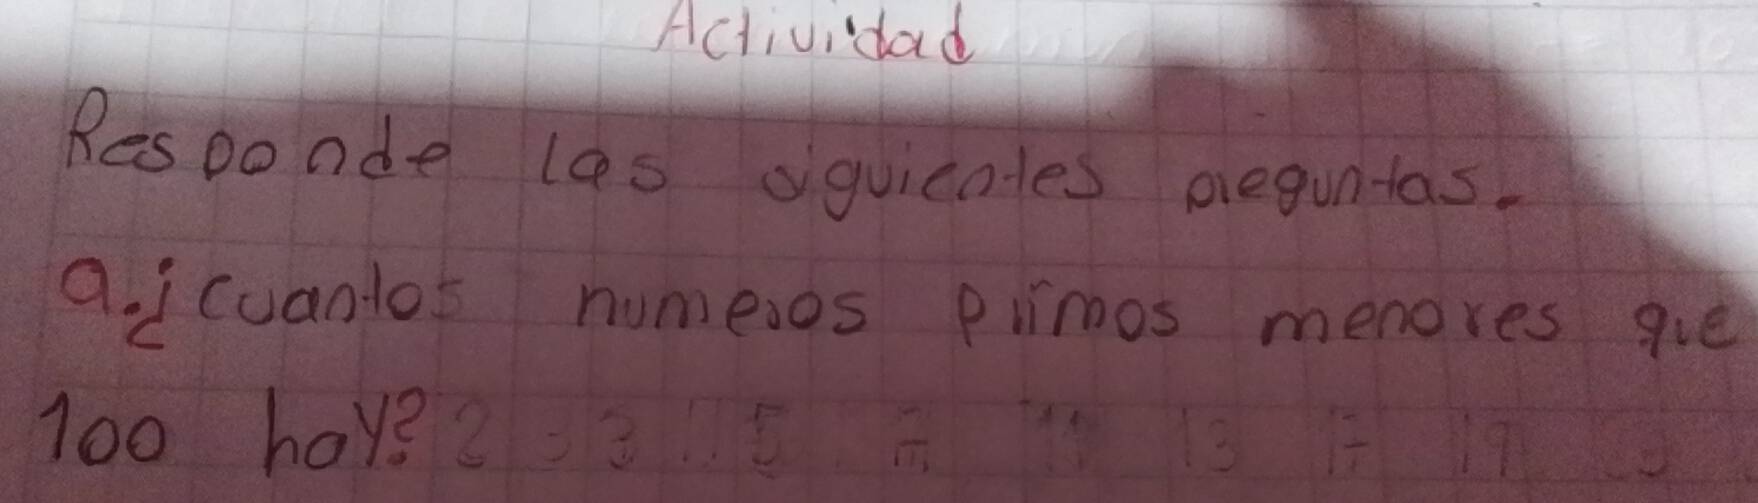 Actividad
Responde las siguientes preguntas.
a.¿cuantos numeros primos menores que
100 hay? 2 3 5 7 11 13 17 19